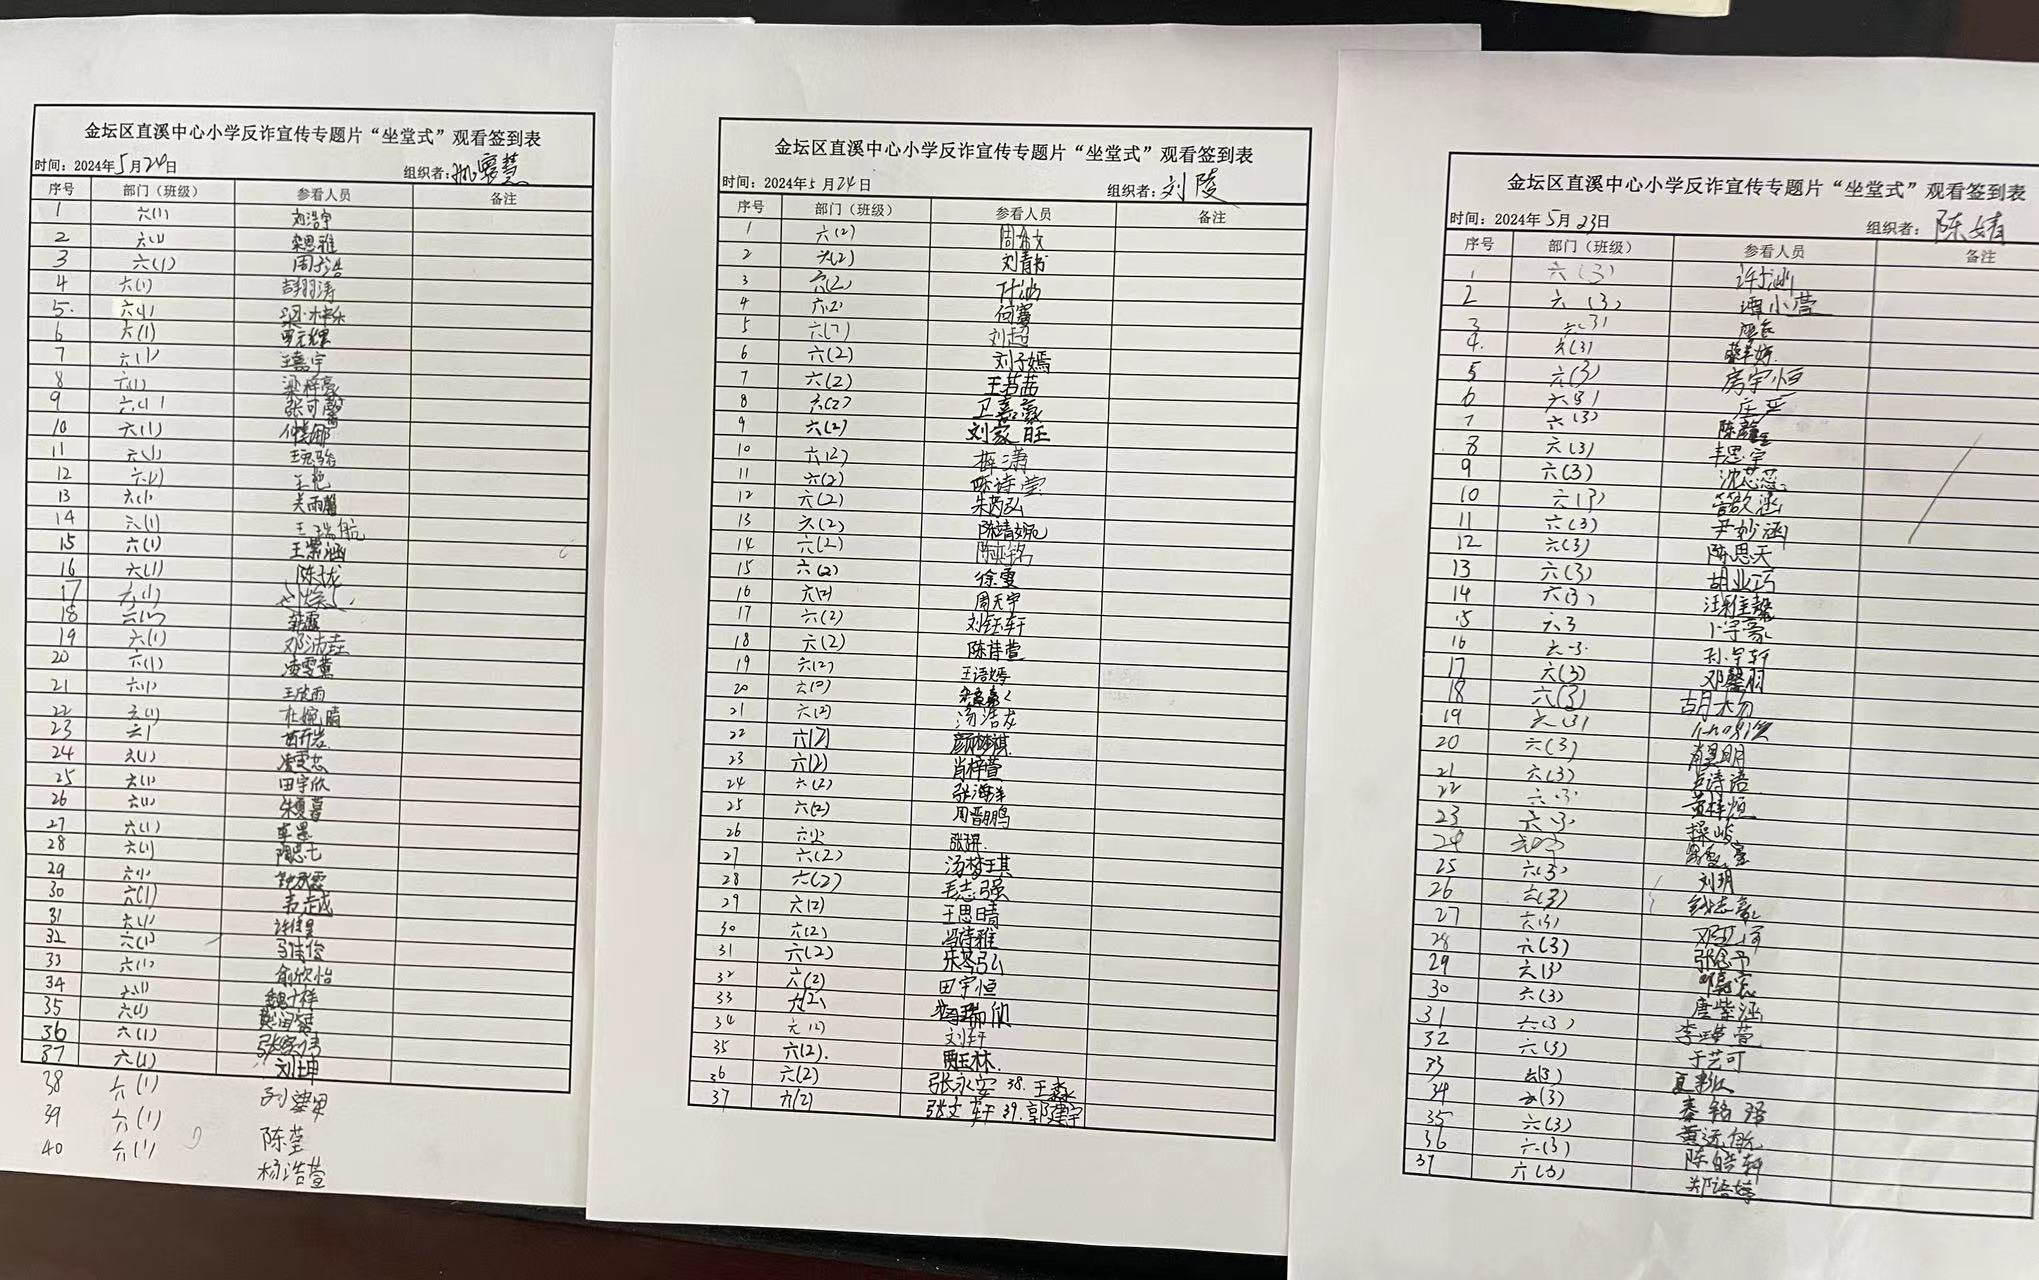 金坛区直溪中心小学反诈宣传专题片“坐堂式”观看签到表
时间：2024年5月24日 组织者：
序号 部门（班级） 参看人员 备注
1 六(1) 刘浩宇
2 六(1) 栾思雅
3 六(1) 周子浩
4 六(1)
5. 六(1)
6 六(1)
7 六(1) 王嘉宇
8 六(1) 梁梓豪
9 六(1) 张可馨
10 六(1)
11 六(1)
12 六(1)
13 六(1) 关雨馨
14 六(1) 王瑞航
15 六(1) 王紫涵
16 六(1) 陈子龙
17 六(1)
18 六(1)
19 六(1)
20 六(1) 凌雪萱
21 六(1)
22 六(1) 杜婉晴
23 六1
24 六(1)
25 六(1) 田宇欣
26 六(1) 朱夏萱
27 六(1)
28 六(1)
29 六(1)
30 六(1) 韦越
31 六(1)
32 六(1) 马佳俊
33 六(1) 俞欣怡
34 六(1)
35 六(1)
36 六(1)
37 六(1) 刘坤
38 六(1)
39 六(1) 陈莹
40 六(1) 杨浩萱
金坛区直溪中心小学反诈宣传专题片“坐堂式”观看签到表
时间：2024年5月24日 组织者：刘陵
序号 部门（班级） 参看人员 备注
1 六(2) 周希文
2 六(2) 刘青书
3 六(2) 付汕
4 六(2) 何赛
5 六(2) 刘超
6 六(2) 刘子嫣
7 六(2) 王若茜
8 六(2) 卫嘉豪
9 六(2) 刘家旺
10 六(2) 薛潇
11 六(2) 陈诗莹
12 六(2) 朱芮弘
13 六(2) 陈婧婉
14 六(2) 陈奕铭
15 六(2) 徐雯
16 六(2) 周天宇
17 六(2) 刘钰轩
18 六(2) 陈梓萱
19 六(2) 王语嫣
20 六(2)
21 六(2) 汤浩龙
22 六(2) 颜梦祺
23 六(2) 肖梓萱
24 六(2) 张海洋
25 六(2) 周晋鹏
26 六(2) 张研
27 六(2) 汤梦琪
28 六(2) 毛志强
29 六(2) 于思晴
30 六(2) 冯诗雅
31 六(2) 朱芩弘
32 六(2) 田宇恒
33 六(2)
34 六(2) 刘轩
35 六(2). 贾玉林.
36 六(2) 张永安 38. 王淼
37 六(2) 张文轩 39. 郭建宇
金坛区直溪中心小学反诈宣传专题片“坐堂式”观看签到表
时间：2024年5月23日 组织者：陈婧
序号 部门（班级） 参看人员 备注
1 六(3) 许汕
2 六(3) 谭小莹
3 六(3)
4. 六(3)
5 六(3) 房宇恒
6 六(3) 庄严
7 六(3)
8 六(3) 丰思宇
9 六(3) 沈芯蕊
10 六(3) 管歆涵
11 六(3) 尹妙涵
12 六(3) 陈思天
13 六(3) 胡业巧
14 六(3) 汪雅馨
15 六3 卜宇豪
16 六3 孙宇轩
17 六(3) 邓馨羽
18 六(3)
19 六(3)
20 六(3) 肖昊明
21 六(3) 吴诗语
22 六3 黄梓烜
23 六3 操峻
24 六(3)
25 六(3) 刘玥
26 六(3)
27 六(3)
28 六(3) 张念予
29 六(3) 邓嘉宏
30 六(3) 唐紫涵
31 六(3) 李瑾萱
32 六(3) 于艺可
33 六(3)
34 六(3) 秦铭浩
35 六(3) 黄远航
36 六(3) 陈皓轩
37 六(3) 郑语婷